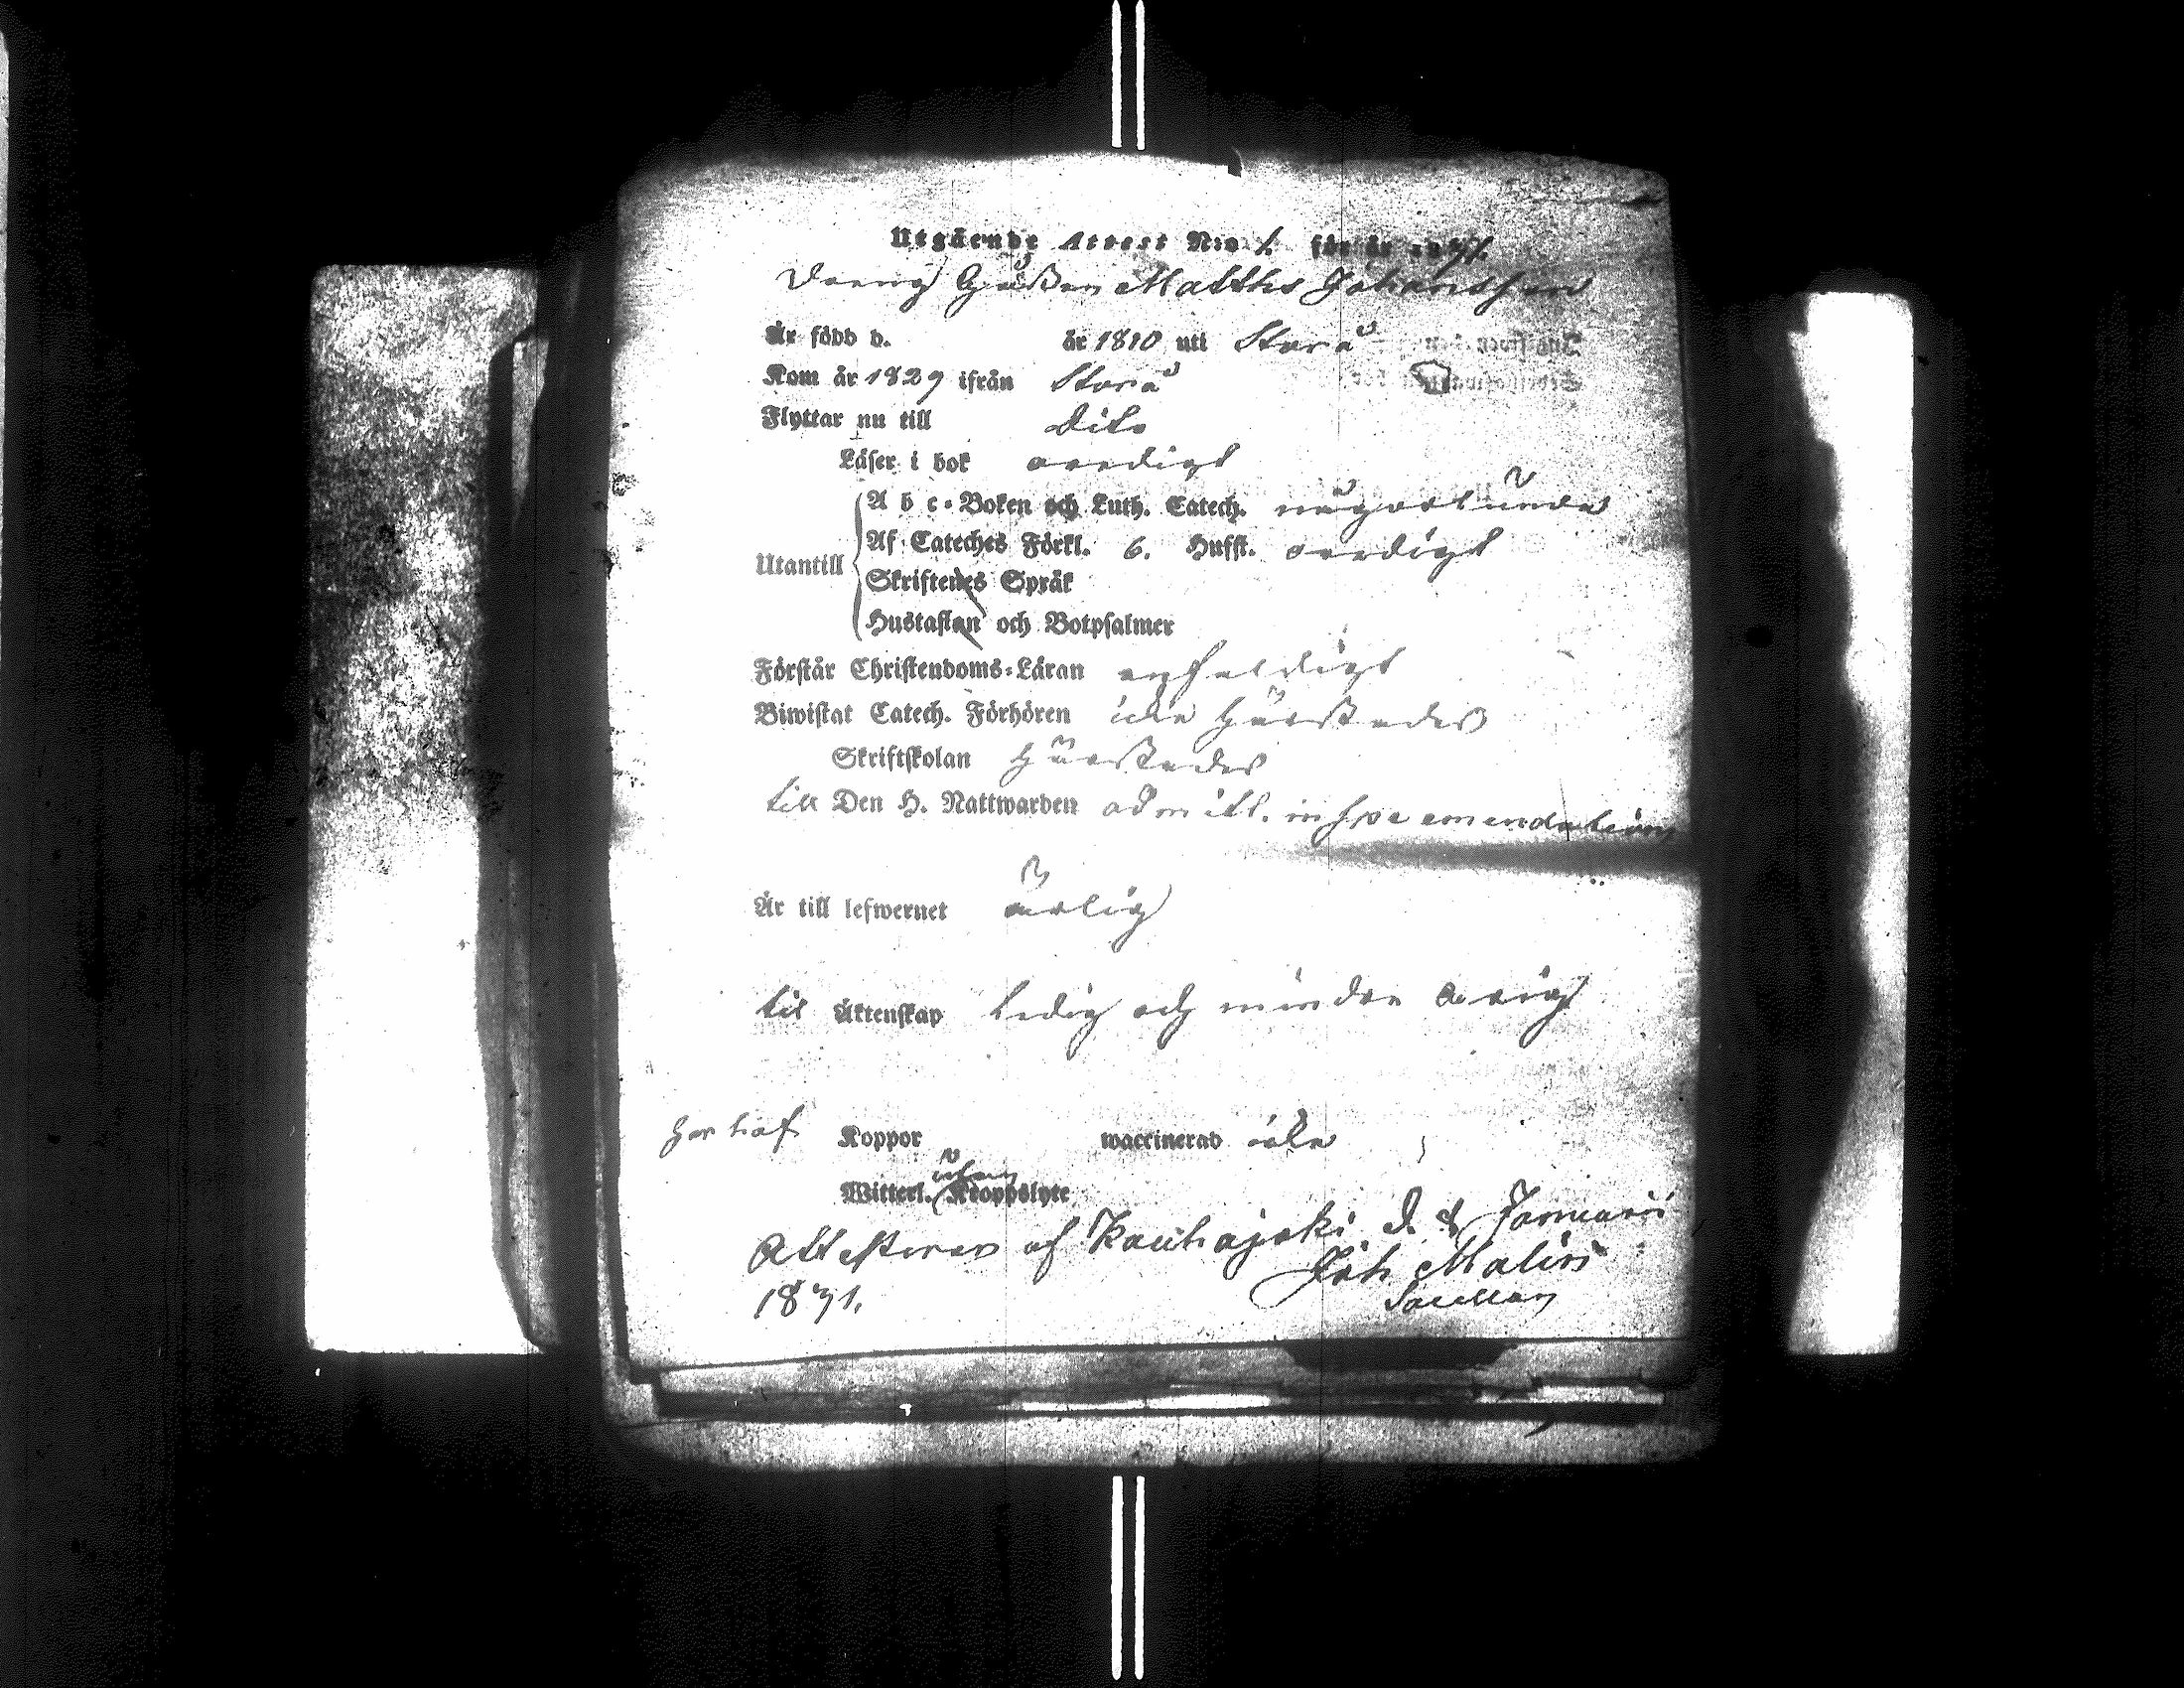 Utgående Attest N:o 1. för år 1831.
Dräng Gåßen Matths Johansson
Är född d. år 1810 uti Storå
Kom år 1829 ifrån Storå
Flyttar nu till dito
Läser i bok
A b c-Boken och Luth. Catech. någorlunda
Utantill Af Cateches Förkl. 6. Hufst.
Skriftenes Språk
Hustaflan och Botpsalmer
Förstår Christendoms-Läran enfaldigt
Biwistat Catech. Förhören icke härstädes
Skriftskolan härstädes
till Den H. Nattwarden admitt. in spe emendationis
Är till lefwernet ärlig
till Äktenskap Ledig och
har haft Koppor waccinerad icke
Witterl. utan Kroppslyte
Attesterar af Kauhajoki d. Januarii
1831. Joh Malin